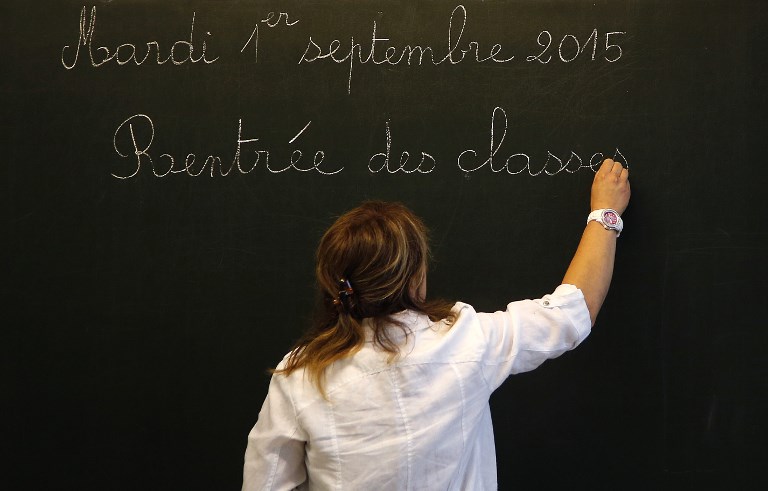 Mardi 1er septembre 2015
Rentrée des classes